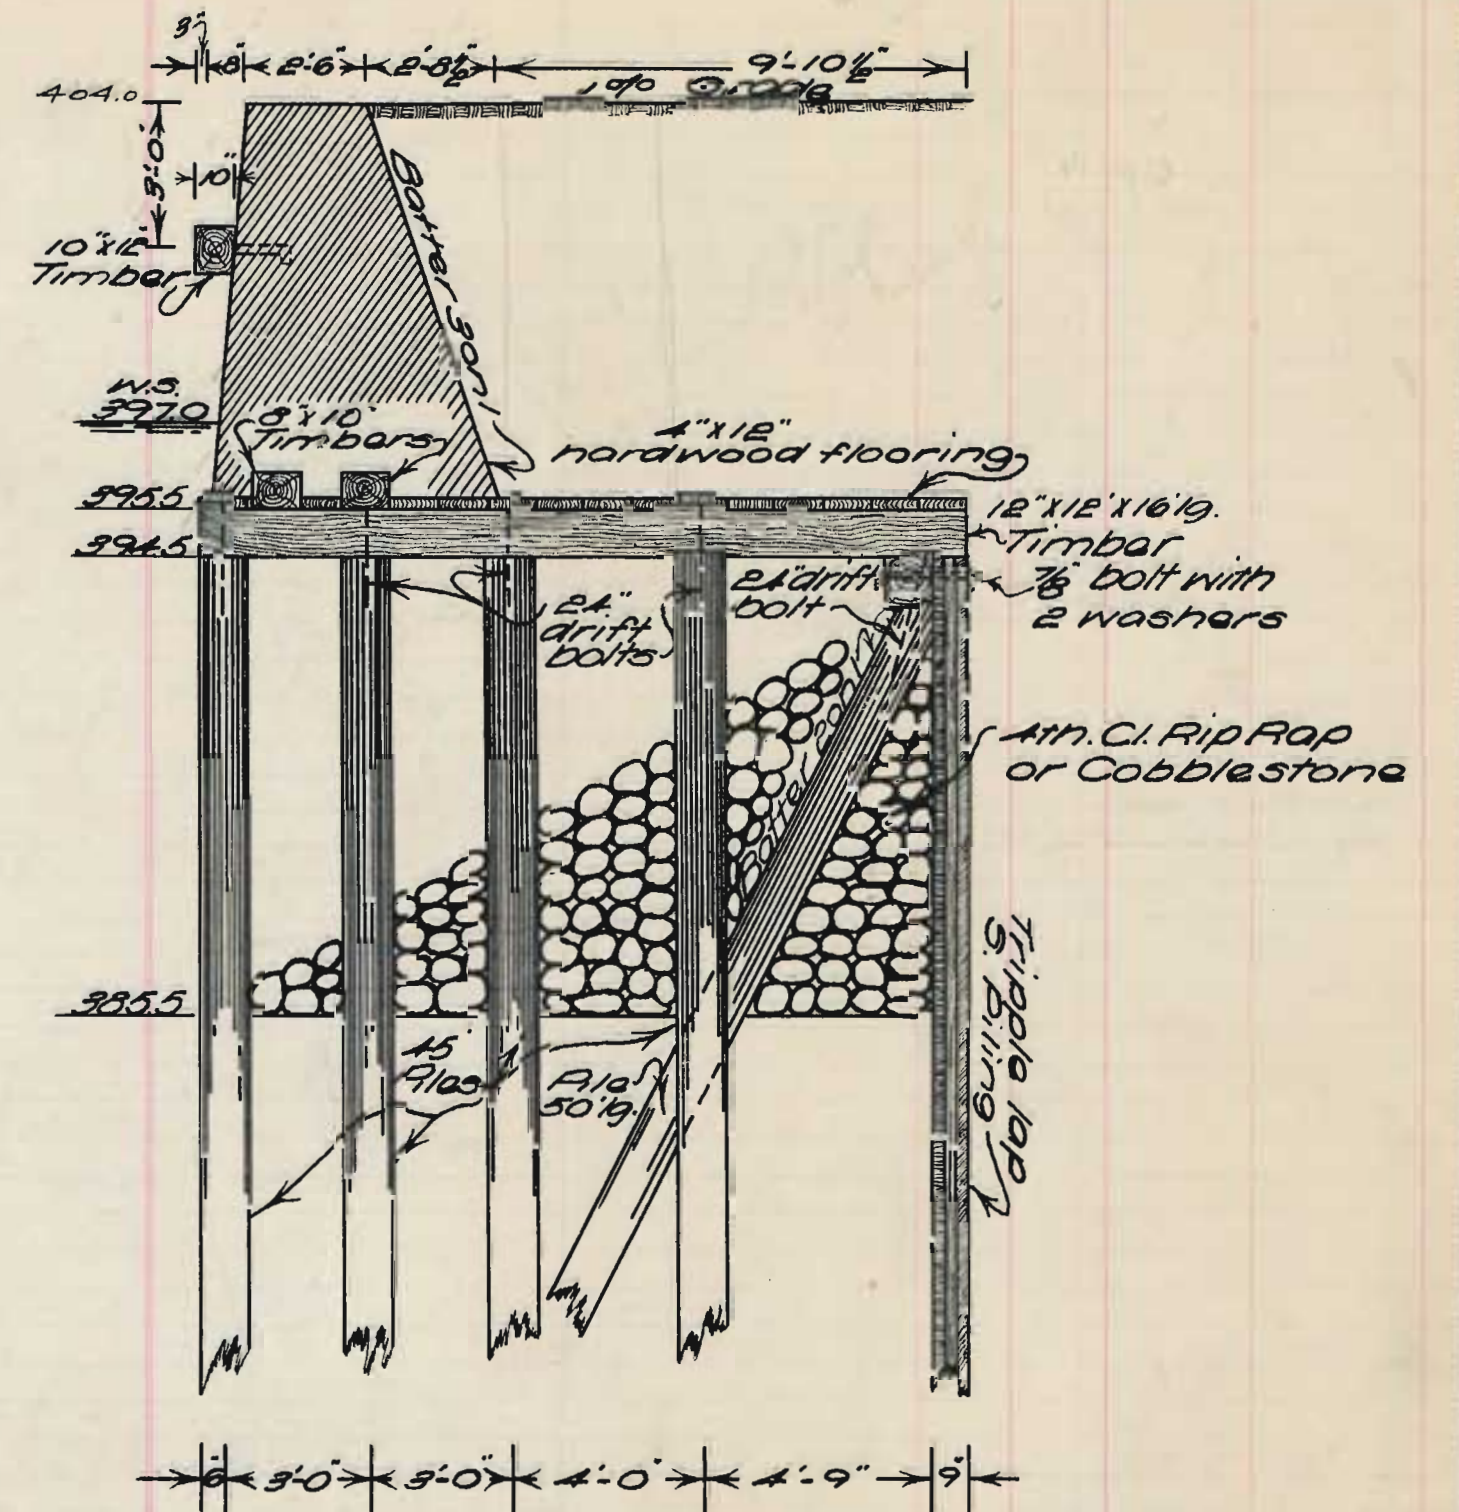 3"
8" 2'-6" 2'-8½" 9'-10½"
404.0
1% Grade
3'-0"
10"
10"x12"
Timber
Batter 3 on 1
W.S.
397.0
8"x10"
Timbers
4"x12"
hardwood flooring
395.5
394.5
12"x12"x16'lg.
Timber
⅞" bolt with
2 washers
24"
drift
bolts
24" drift
bolt
4th. Cl. Rip Rap
or Cobblestone
385.5
45'
Piles
Pile
50'lg.
Tripple lap
S. Piling
6" 3'-0" 3'-0" 4'-0" 4'-9" 9"